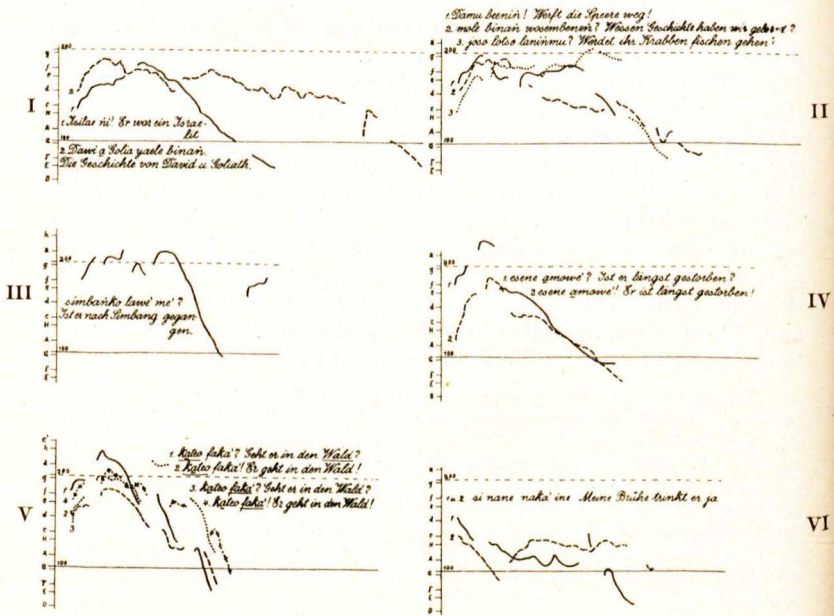 I
1. Isilae ni! Er war ein Israe-
lit
2. Dawi a Golia yaele binañ.
Die Geschichte von David u. Goliath.
II
1. Damu beeniñ! Werft die Speere weg!
2. mole binañ wosembeneñ? Wessen Geschichte haben wir
3. joso lolso laniñmu? Werdet ihr Krabben fischen gehen?
III
simbañko lawe me'?
Ist er nach Simbang gegan-
gen.
IV
1 esene amowe'? Ist er längst gestorben?
2 esene amowe'! Er ist längst gestorben!
V
1. kateo faka'? Geht er in den Wald?
2. kateo faka'! Er geht in den Wald!
3. kateo faka'? Geht er in den Wald?
4. kateo faka'! Er geht in den Wald!
VI
1 u. 2 si nane naka' ine Meine Brühe trinkt er ja